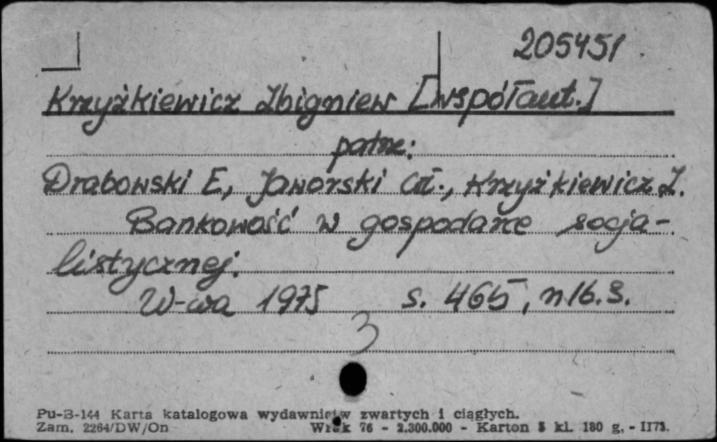 205451
Krzyżkiewicz Zbigniew [współaut.]
patrz:
Drabowski E, Jaworski Wł., Krzyżkiewicz Z.
Bankowość w gospodarce socja-
listycznej.
W-wa 1975 s. 465, nlb. 3.
3
Pu-B-144 Karta katalogowa wydawnictw zwartych i ciągłych.
Zam. 2264/DW/On 76 - 2.300.000 - Karton kl. 180 g.